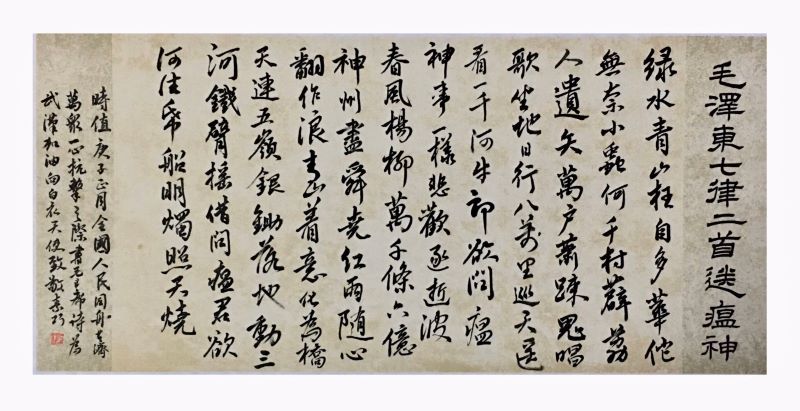 毛澤東七律二首送瘟神
緑水青山枉自多華佗
無奈小蟲何千村薜荔
人遺矢萬户蕭疎鬼唱
歌坐地日行八萬里巡天遥
看一千河牛郎欲問瘟
神事一樣悲歡逐逝波
春風楊柳萬千條六億
神州盡舜堯红雨隨心
翻作浪青山着意化為橋
天連五嶺銀鋤落地動三
河鐵臂摇借問瘟君欲
何往帋船明燭照天燒
時值庚子正月全國人民同舟共濟
萬衆一心抗擊之際書毛主席詩為
武漢加油向白衣天使致敬